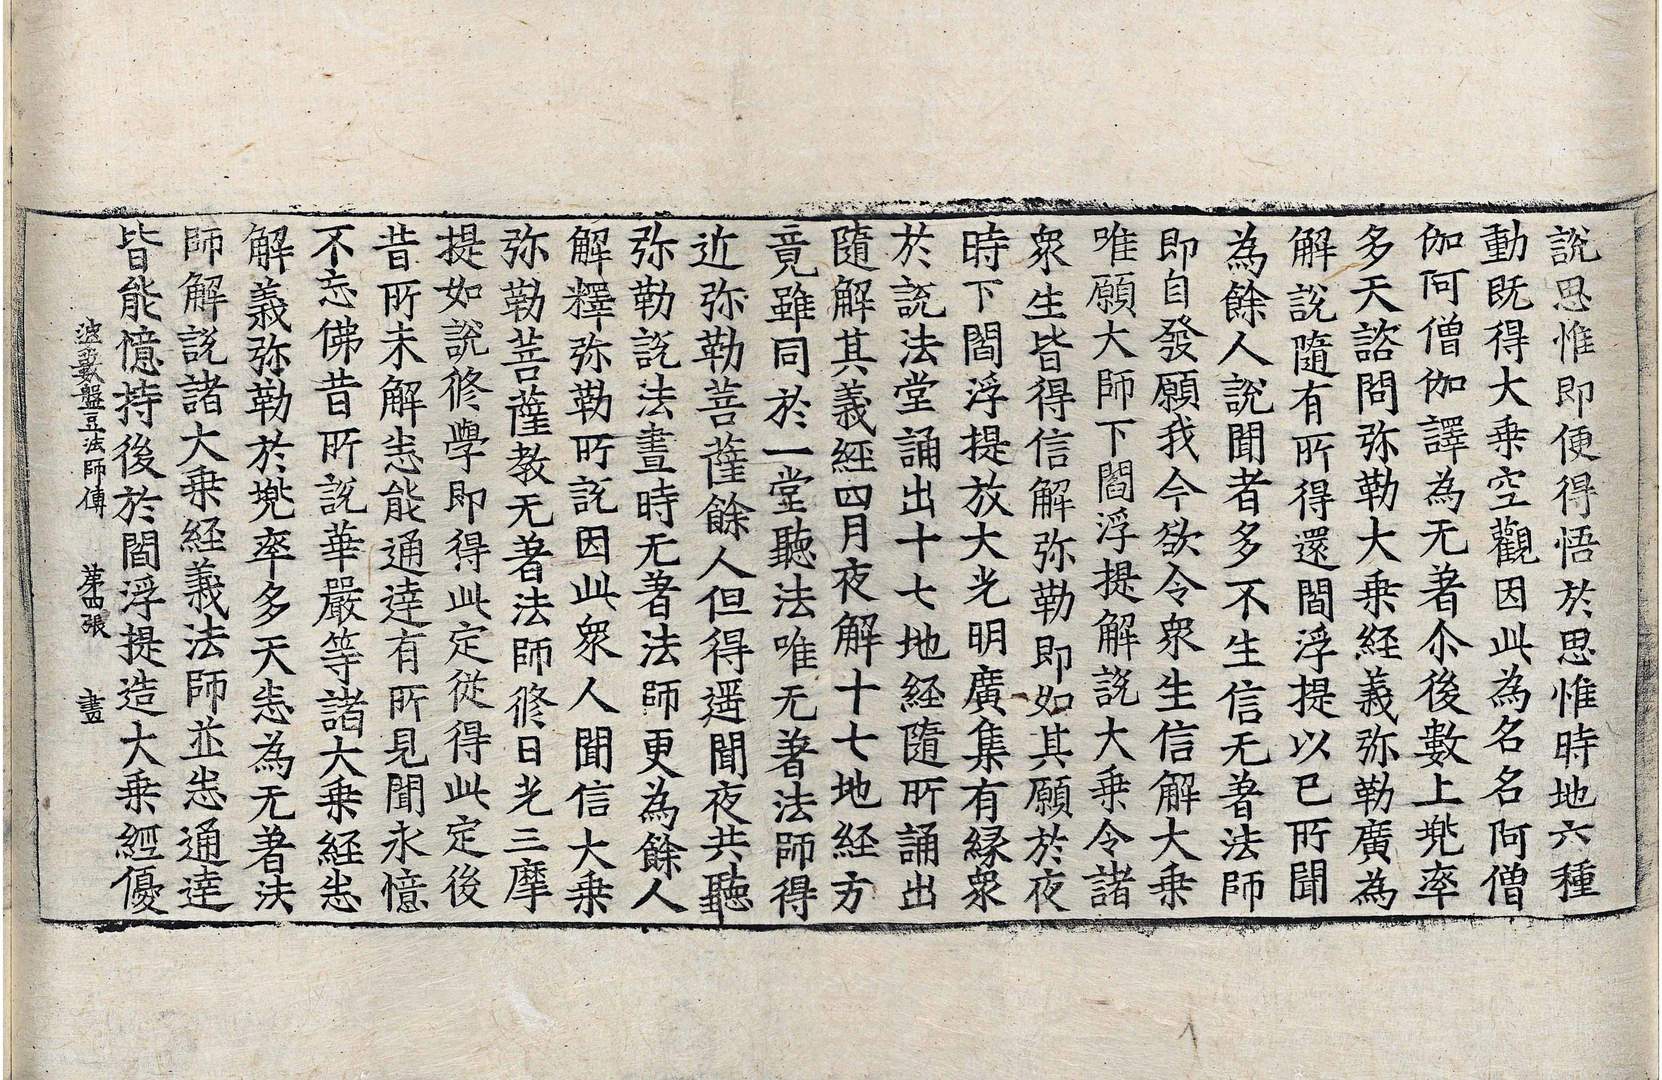 說思惟即便得悟於思惟時地六種
動既得大乗空觀因此為名名阿僧
伽阿僧伽譯為无著尒後數上兠率
多天諮問弥勒大乗経義弥勒廣為
解說隨有所得還閻浮提以已所聞
為餘人說聞者多不生信无著法師
即自發願我今欲令衆生信解大乗
唯願大師下閻浮提解說大乗令諸
衆生皆得信解弥勒即如其願於夜
時下閻浮提放大光明廣集有縁衆
於說法堂誦出十七地経隨所誦出
隨解其義経四月夜解十七地経方
竟雖同於一堂聽法唯无著法師得
近弥勒菩薩餘人但得遥聞夜共聽
弥勒說法晝時无著法師更為餘人
解釋弥勒所說因此衆人聞信大乗
弥勒菩薩教无著法師修日光三摩
提如說修學即得此定従得此定後
昔所未解悉能通達有所見聞永憶
不忘佛昔所說華嚴等諸大乗経悉
解義弥勒於兠率多天悉為无著法
師解說諸大乗経義法師並悉通達
皆能憶持後於閻浮提造大乗經優
波藪盤豆法師傳 第四張 畫